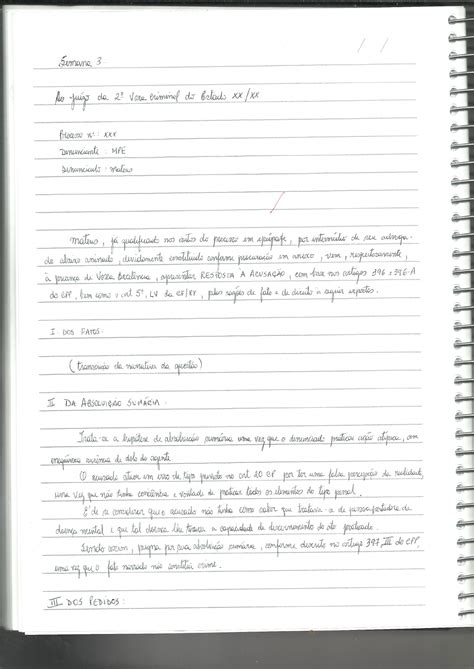 / /
Semana 3
Ao juízo da 2ª Vara Criminal do Estado xx/xx
Processo nº: xxx
Denunciante: MPE
Denunciado: Mateus
Mateus, já qualificado nos autos do processo em epígrafe, por intermédio de seu advoga-
do abaixo assinado, devidamente constituído conforme procuração em anexo, vem, respeitosamente,
à presença de Vossa Excelência, apresentar RESPOSTA À ACUSAÇÃO, com base nos artigos 396 e 396-A
do CPP, bem como o art 5º, LV da CF/88, pelas razões de fato e de direito a seguir expostas.
I DOS FATOS:
(transcrição da narrativa da questão)
II DA ABSOLVIÇÃO SUMÁRIA:
Trata-se a hipótese de absolvição sumária uma vez que o denunciado praticou ação atípica, com
inequívoca ausência de dolo do agente.
O acusado atuou em erro de tipo previsto no art 20 CP por ter uma falsa percepção da realidade,
uma vez que não tinha consciência e vontade de praticar todos os elementos do tipo penal.
É de se considerar que o acusado não tinha como saber que tratava-se de pessoa portadora de
doença mental e que tal doença lhe tirava a capacidade de discernimento do ato praticado.
Sendo assim, pugna por sua absolvição sumária, conforme descrito no artigo 397, III do CPP,
uma vez que o fato narrado não constitui crime.
III DOS PEDIDOS: